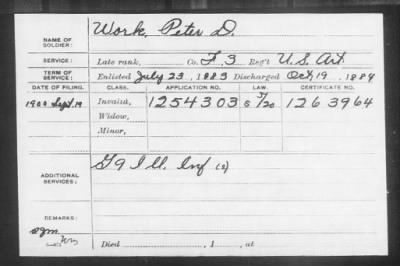 NAME OF SOLDIER: Work, Peter D.
SERVICE: Late rank, Co. F. 3 Reg't U.S. Art.
TERM OF SERVICE: Enlisted July 23, 1883 Discharged Oct 19, 1884
DATE OF FILING. CLASS. APPLICATION NO. LAW. CERTIFICATE NO.
1900 Sept. 19 Invalid, 1254303 1263964
Widow,
Minor,
ADDITIONAL SERVICES: G 9 Ill. Inf (s)
REMARKS:
Died , 1 , at